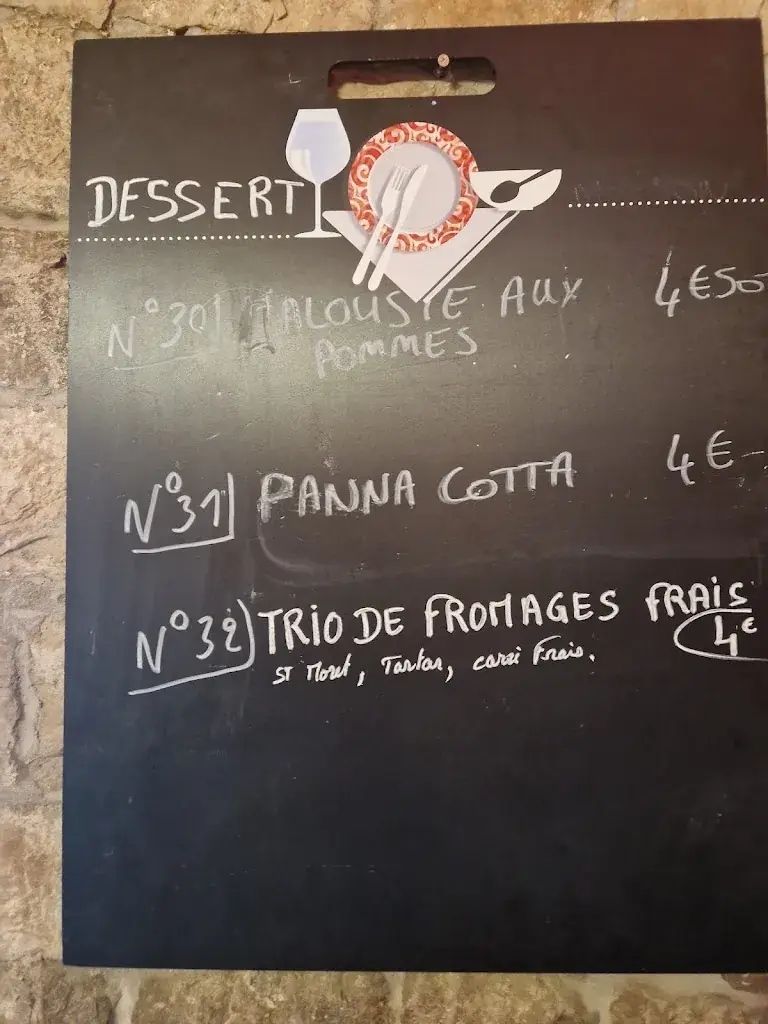 DESSERT
N°30 JALOUSIE AUX 4€50
POMMES
N°31 PANNA COTTA 4€-
N°32 TRIO DE FROMAGES FRAIS
4€
ST Moret, Tartare, carré Frais.